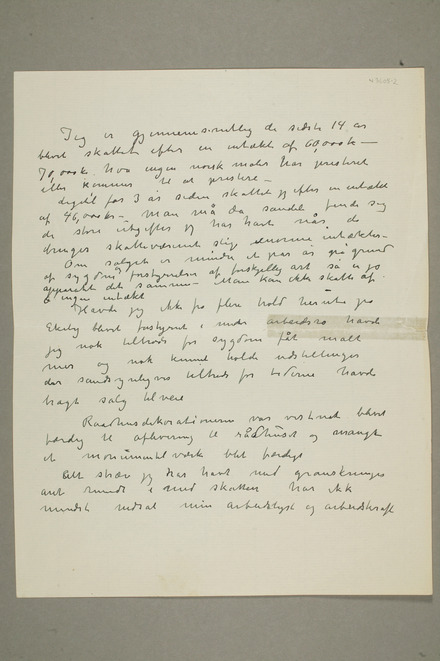 Jeg er gjennemsnitlig de sidste 14 år
blevet skattet efter en indtækt af 60,000 k –
70,000 k. Hva ingen norsk maler har presteret
eller kommer til at prestere –
Indtil for 3 år siden skattet jeg efter en indtækt
af 46,000 kr – Man må da sande
de store utgifter jeg har havt når de
skattevæsenet slig enorme indtækter –
Om salget er mindre et par år på grund
af sygdom forstyrrelser af forskjellig art så er jo
apparatet det samme – Man kan ikke skatte af
ingen indtækt
Havde jeg ikke fra flere hold her ute på
Ekely blevet forstyrret i mit arbeidsro havde
jeg nok tiltrods for sygdom fåt malt
mer og nok kunnet holde udstillinger
der sandsynligvis tiltrods for tiderne havde
bragt salg tilveie
Raadhusdekorationerne var vistnok blevet
færdig til aflevering til rådhuset og mangt
et monumentalt værk blet færdigt
Alt stræv jeg har havt med granskninger
året rundt i med skatten har ikke
mindst nedsat min arbeidslyst og arbeidskraft